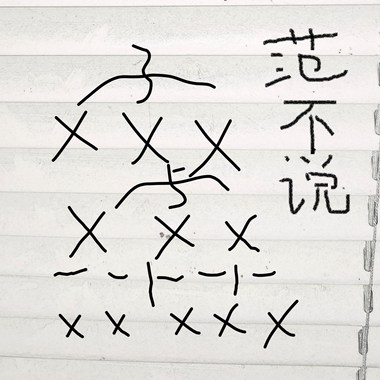 范不说
X X X
X X X
X X X X X